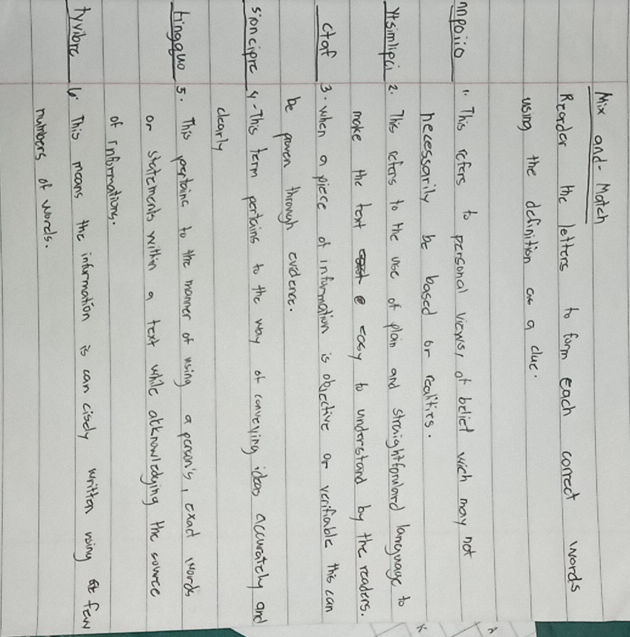 Mix and- Match
Reorder the letters to form each correct words
using the definition as a clue.
nnpoiio 1. This refers to personal views, of belief wich may not
necessarily be based or realities.
Ytsimlipci 2. This refers to the use of plain and straightforward language to
make the text easy to understand by the readers.
ctaf 3. when a piece of information is objective or verifiable this can
be proven through evidence.
sioncipre 4. This term pertains to the way of conveying ideas accurately and
clearly
tingquo 5. This pertains to the manner of using a person's, exact words
or statements within a text while acknowledging the source
of informations.
tyvibre 6. This means the information is can cisely written using few
numbers of words.